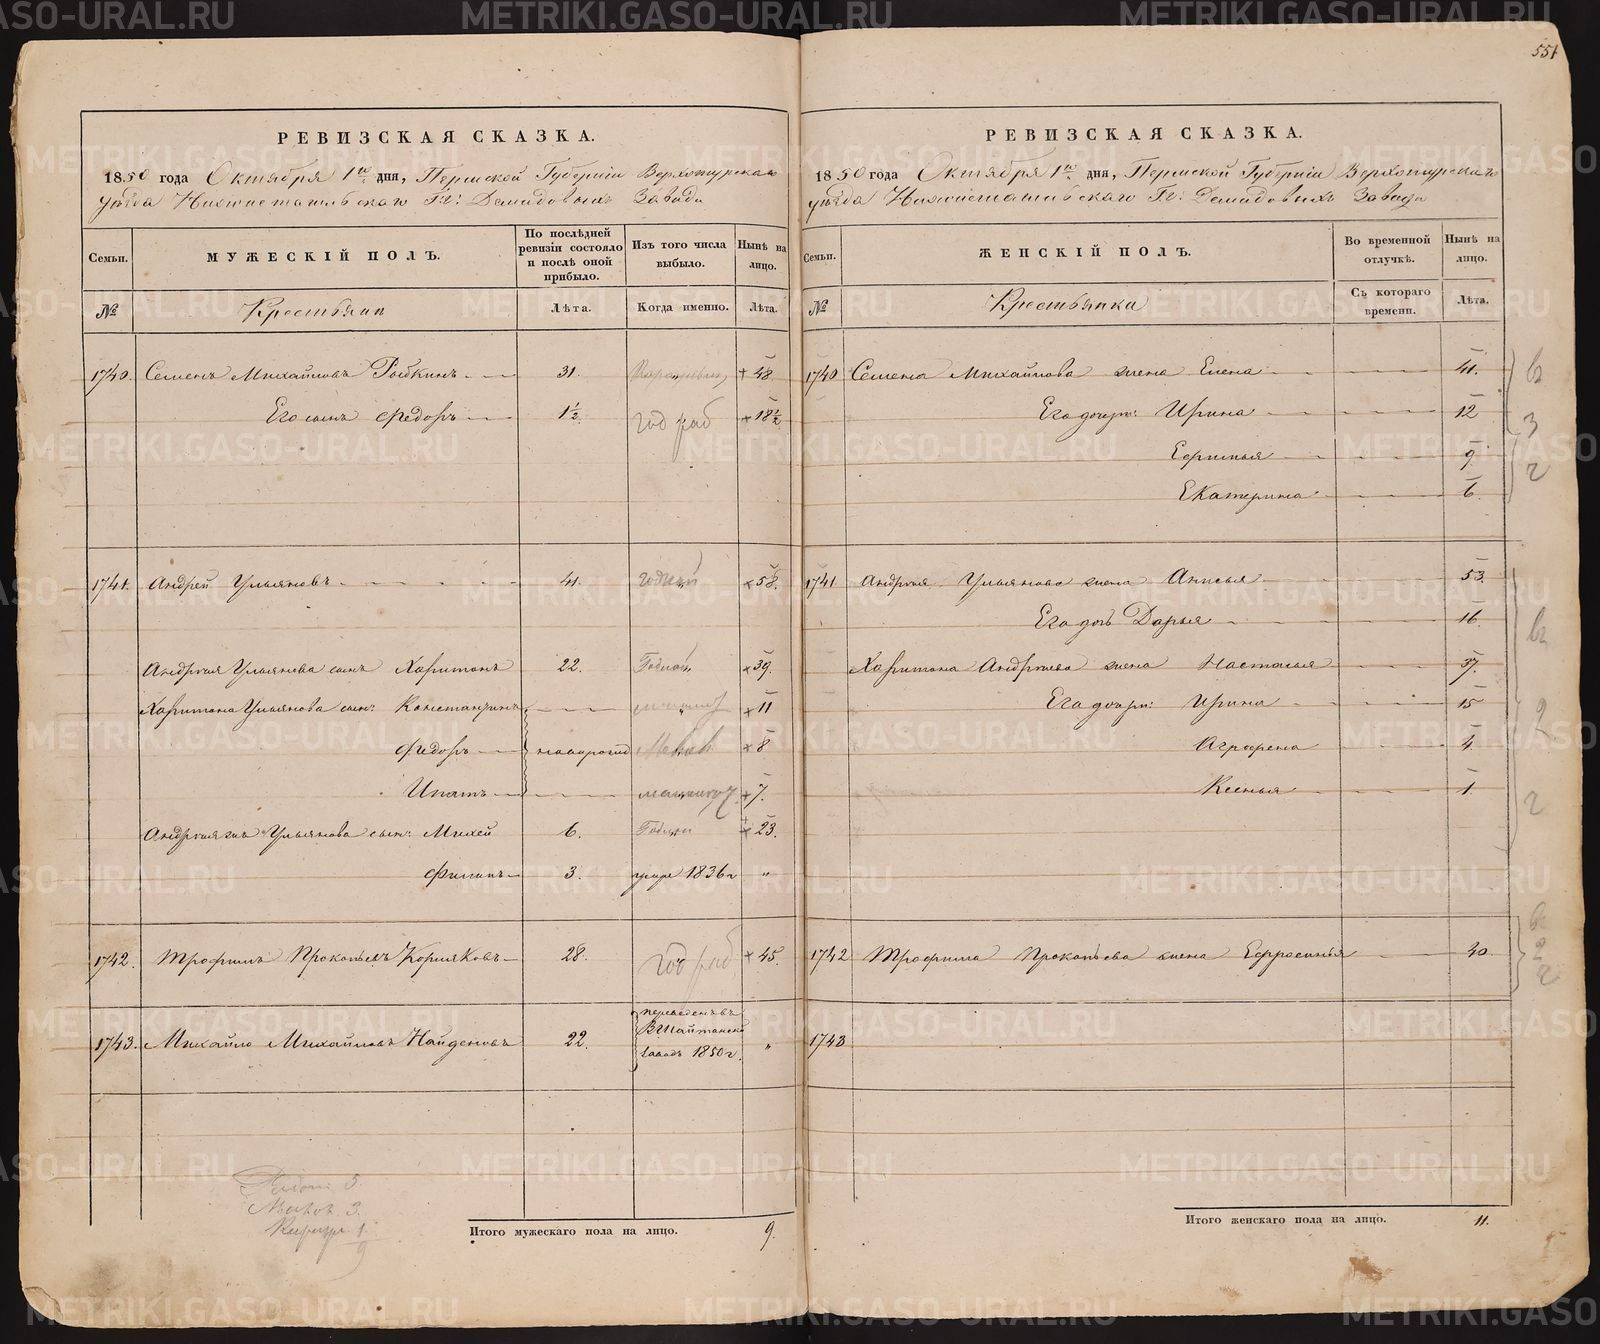 551
РЕВИЗСКАЯ СКАЗКА.
1850 года Октября 1го дня, Пермской Губерніи Верхотурскаго
уѣзда Нижнетагильскаго Гг: Демидовыхъ Завода
Семьи. МУЖЕСКІЙ ПОЛЪ. По послѣдней ревизіи состояло и послѣ оной прибыло. Изъ того числа выбыло. Нынѣ на лицо.
№ Крестьянъ Лѣта. Когда именно. Лѣта.
1740. Семенъ Михайловъ 31. + 48
Его сынъ Федоръ 1½ год раб + 18½
1741. Андрей Ульяновъ 41. годный + 58.
Андрея Ульянова сынъ Харитонъ 22. Годной + 39.
Харитона Ульянова сын: Константинъ + 11
Федоръ новорожд + 8
Ипатъ + 7.
Ульянова сын: Михей 6. + 23.
Филипъ 3. умре 1836 г "
1742. Трофимъ Прокопьевъ Коряковъ 28. год раб + 45.
1743. Михайло Михайловъ Найденовъ 22. переведенъ въ В Шайтанскій заводъ 1850 г. "
3.
Малов 3.
1.
9
Итого мужескаго пола на лицо. 9.
РЕВИЗСКАЯ СКАЗКА.
1850 года Октября 1го дня, Пермской Губерніи Верхотурскаго
уѣзда Нижнетагильскаго Гг: Демидовыхъ Завода
Семьи. ЖЕНСКІЙ ПОЛЪ. Во временной отлучкѣ. Нынѣ на лицо.
№ Крестьянка Съ котораго времени. Лѣта.
1740 Семена Михайлова жена Елена 41.
Его дочери: Ирина 12
Ефимья 9
Екатерина 6.
1741 Андрея Ульянова жена Анисья 53.
Его дочь Дарья 16
Харитона Андреева жена Настасья 37.
Его дочери: Ирина 15
Аграфена 4.
Ксенья 1
1742 Трофима Прокопьева жена Ефросинья 40.
1743
Итого женскаго пола на лицо. 11.
METRIKI.GASO-URAL.RU